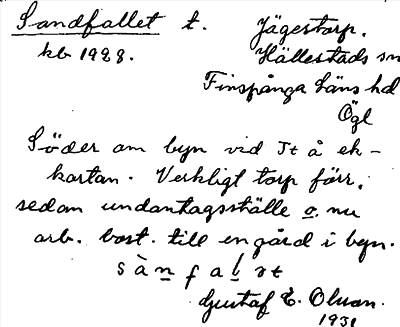 Sandfallet t. Jägestorp.
kb 1928. Hällestads sn
Finspånga läns hd
Ögl
Söder om byn vid St å ek-
kartan. Verkligt torp förr,
sedan undantagsställe o. nu
arb. bost. till en gård i byn.
s à n f a l ət
Gustaf E. Olson.
1931